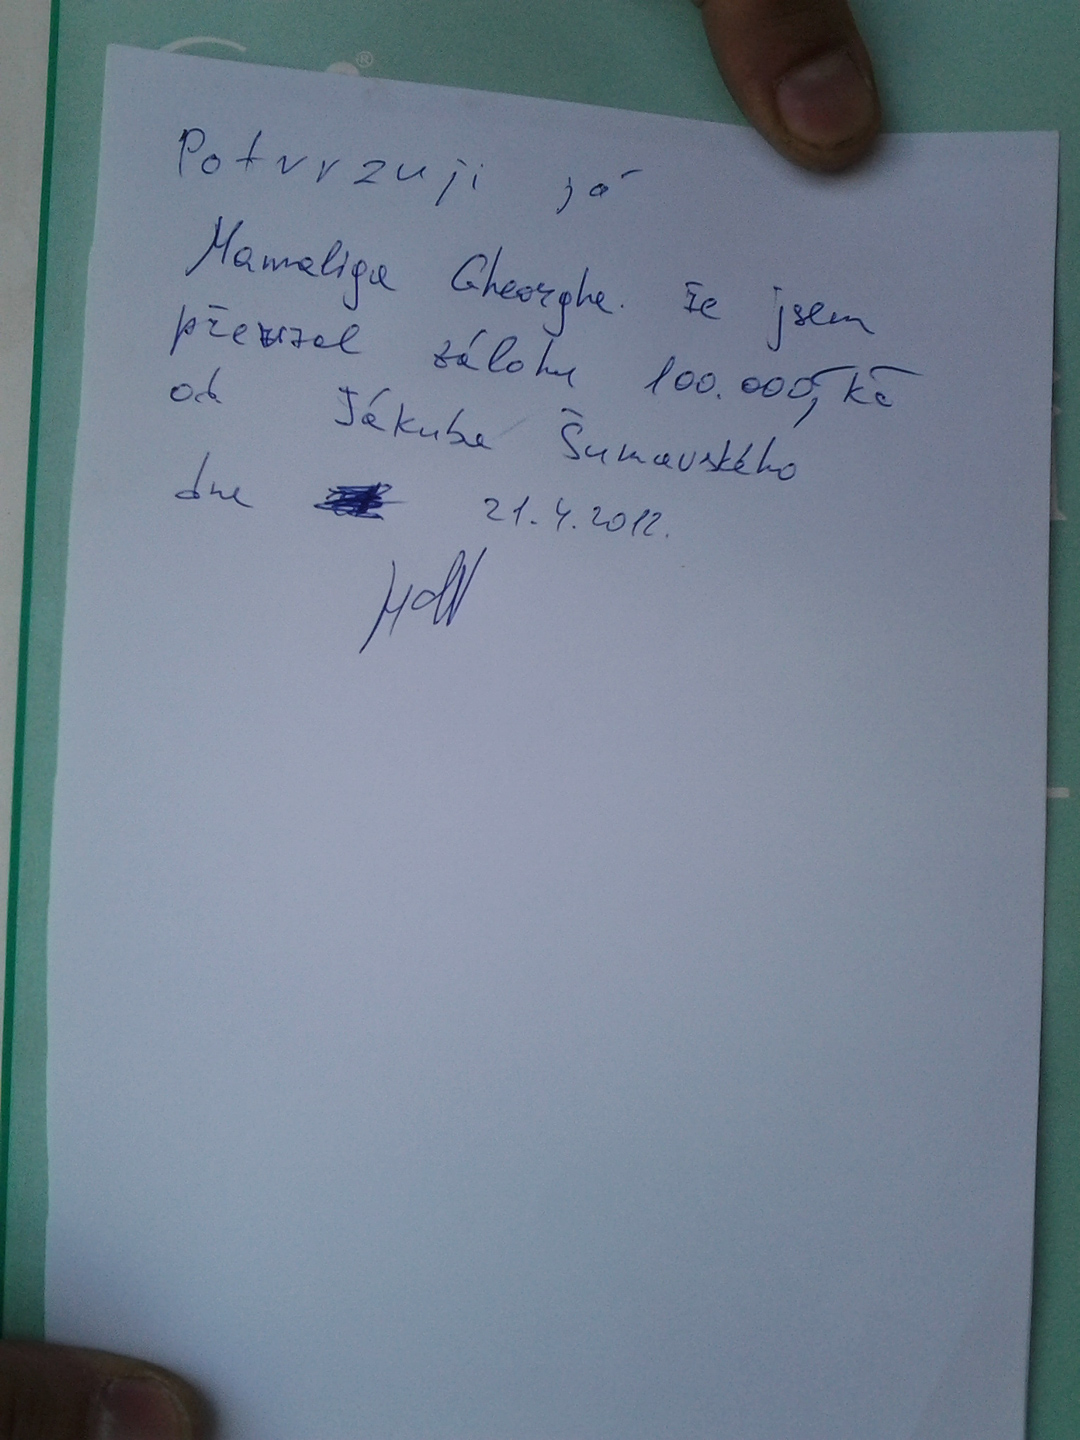 Potvrzuji já
Mamaliga Gheorghe. že jsem
převzal zálohu 100.000,- kč
od Jákuba Šumavského
dne 21.4.2012.